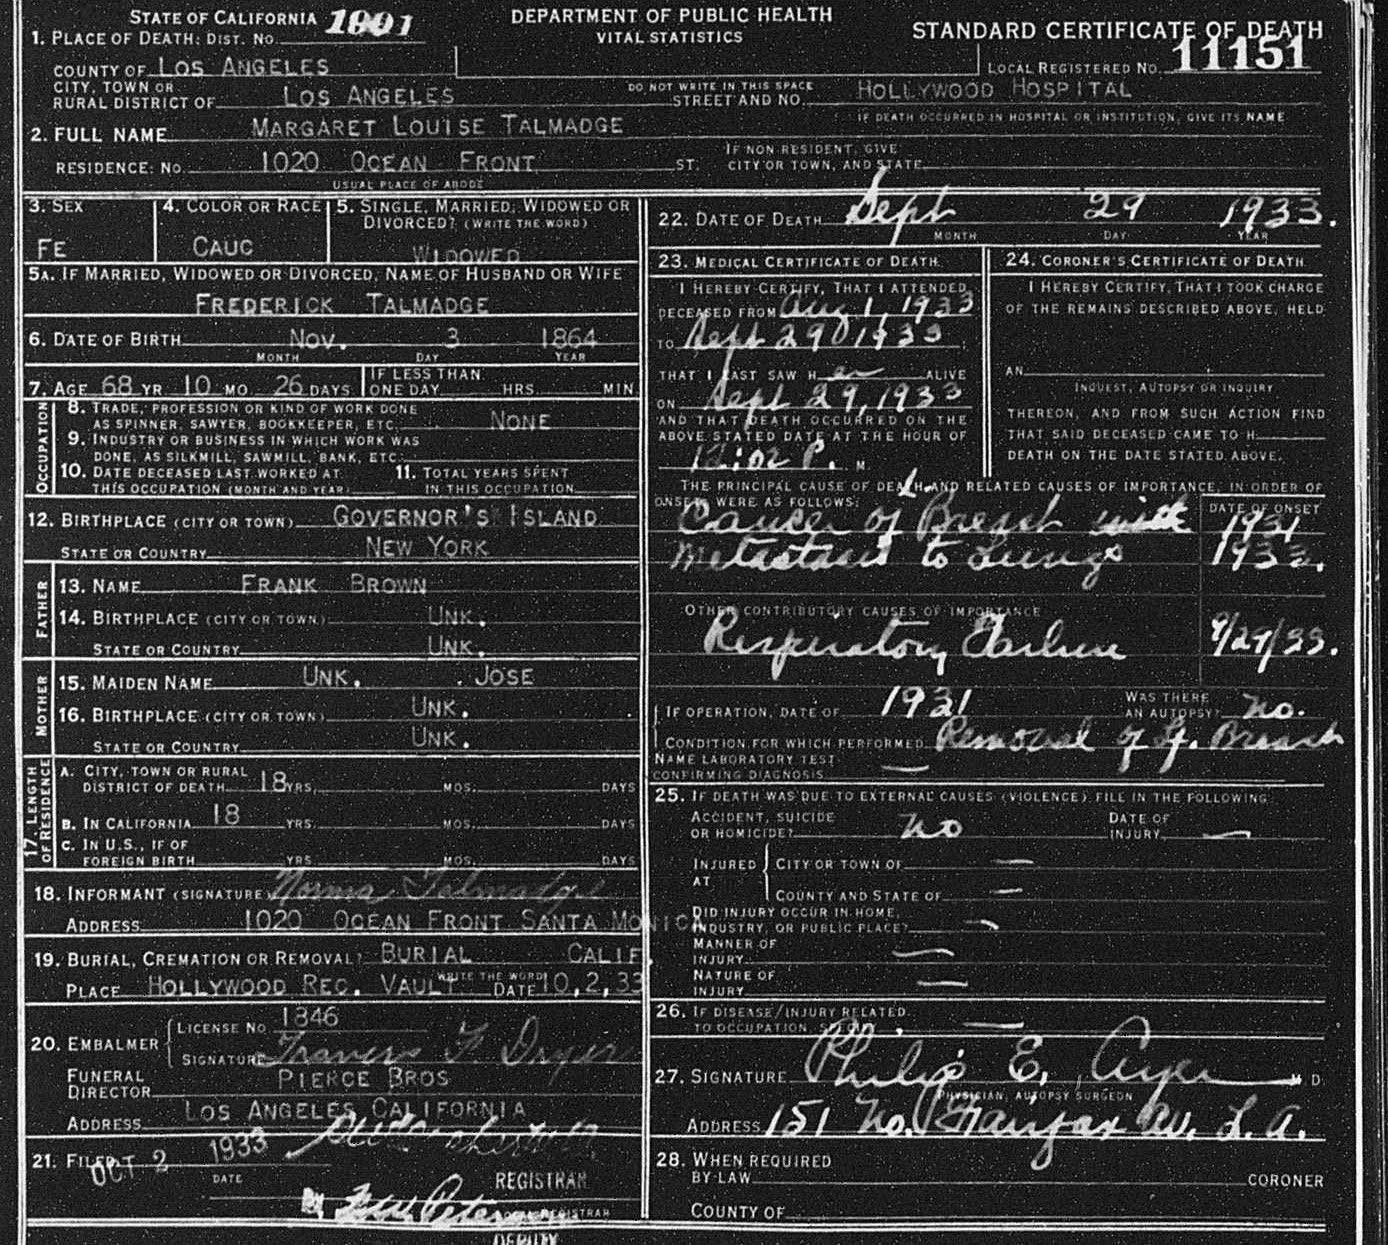 STATE OF CALIFORNIA 1901
DEPARTMENT OF PUBLIC HEALTH
VITAL STATISTICS
STANDARD CERTIFICATE OF DEATH
1. PLACE OF DEATH: DIST. NO.
LOCAL REGISTERED NO. 11151
COUNTY OF LOS ANGELES
CITY, TOWN OR
RURAL DISTRICT OF LOS ANGELES
DO NOT WRITE IN THIS SPACE
STREET AND NO. HOLLYWOOD HOSPITAL
IF DEATH OCCURRED IN HOSPITAL OR INSTITUTION, GIVE ITS NAME
2. FULL NAME MARGARET LOUISE TALMADGE
RESIDENCE: NO. 1020 OCEAN FRONT ST.
IF NON RESIDENT, GIVE
CITY OR TOWN, AND STATE
USUAL PLACE OF ABODE
3. SEX
FE
4. COLOR OR RACE
CAUC
5. SINGLE, MARRIED, WIDOWED OR
DIVORCED? (WRITE THE WORD)
WIDOWED
5A. IF MARRIED, WIDOWED OR DIVORCED, NAME OF HUSBAND OR WIFE
FREDERICK TALMADGE
6. DATE OF BIRTH NOV. 3 1864
MONTH DAY YEAR
7. AGE 68 YR 10 MO 26 DAYS
IF LESS THAN
ONE DAY HRS MIN
OCCUPATION
8. TRADE, PROFESSION OR KIND OF WORK DONE
AS SPINNER, SAWYER, BOOKKEEPER, ETC. NONE
9. INDUSTRY OR BUSINESS IN WHICH WORK WAS
DONE, AS SILKMILL, SAWMILL, BANK, ETC.
10. DATE DECEASED LAST WORKED AT
THIS OCCUPATION (MONTH AND YEAR)
11. TOTAL YEARS SPENT
IN THIS OCCUPATION
12. BIRTHPLACE (CITY OR TOWN) GOVERNOR'S ISLAND
STATE OR COUNTRY NEW YORK
FATHER
13. NAME FRANK BROWN
14. BIRTHPLACE (CITY OR TOWN) UNK.
STATE OR COUNTRY UNK.
MOTHER
15. MAIDEN NAME UNK. JOSE
16. BIRTHPLACE (CITY OR TOWN) UNK.
STATE OR COUNTRY UNK.
17. LENGTH OF RESIDENCE
A. CITY, TOWN OR RURAL
DISTRICT OF DEATH 18 YRS. MOS. DAYS
B. IN CALIFORNIA 18 YRS. MOS. DAYS
C. IN U.S., IF OF
FOREIGN BIRTH YRS MOS. DAYS
18. INFORMANT (SIGNATURE) Norma Talmadge
ADDRESS 1020 OCEAN FRONT SANTA MONICA
19. BURIAL, CREMATION OR REMOVAL? BURIAL CALIF.
WRITE THE WORD
PLACE HOLLYWOOD REC. VAULT DATE 10, 2, 33
20. EMBALMER
LICENSE NO. 1846
SIGNATURE Travers F Dryer
FUNERAL
DIRECTOR PIERCE BROS
ADDRESS LOS ANGELES CALIFORNIA
21. FILED OCT 2 1933
DATE
REGISTRAR
LOCAL REGISTRAR
DEPUTY
22. DATE OF DEATH Sept 29 1933.
MONTH DAY YEAR
23. MEDICAL CERTIFICATE OF DEATH
I HEREBY CERTIFY, THAT I ATTENDED
DECEASED FROM Aug 1, 1933
TO Sept 29 1933
THAT I LAST SAW HER ALIVE
ON Sept 29, 1933
AND THAT DEATH OCCURRED ON THE
ABOVE STATED DATE AT THE HOUR OF
12:02 P. M.
24. CORONER'S CERTIFICATE OF DEATH
I HEREBY CERTIFY, THAT I TOOK CHARGE
OF THE REMAINS DESCRIBED ABOVE, HELD
AN
INQUEST, AUTOPSY OR INQUIRY
THEREON, AND FROM SUCH ACTION FIND
THAT SAID DECEASED CAME TO H
DEATH ON THE DATE STATED ABOVE.
THE PRINCIPAL CAUSE OF DEATH AND RELATED CAUSES OF IMPORTANCE, IN ORDER OF
ONSET, WERE AS FOLLOWS:
DATE OF ONSET
Cancer of Breast with 1931
Metastasis to Lungs 1933.
OTHER CONTRIBUTORY CAUSES OF IMPORTANCE
Respiratory Failure 9/29/33.
IF OPERATION, DATE OF 1931
WAS THERE
AN AUTOPSY? no.
CONDITION FOR WHICH PERFORMED Removal of Breast
NAME LABORATORY TEST
CONFIRMING DIAGNOSIS
25. IF DEATH WAS DUE TO EXTERNAL CAUSES (VIOLENCE) FILL IN THE FOLLOWING:
ACCIDENT, SUICIDE
OR HOMICIDE? no
DATE OF
INJURY
INJURED AT
CITY OR TOWN OF
COUNTY AND STATE OF
DID INJURY OCCUR IN HOME,
INDUSTRY, OR PUBLIC PLACE?
MANNER OF
INJURY
NATURE OF
INJURY
26. IF DISEASE/INJURY RELATED
TO OCCUPATION, SPECIFY
27. SIGNATURE Philip E. Ayer M D
PHYSICIAN, AUTOPSY SURGEON
ADDRESS 151 No. Fairfax Av. L.A.
28. WHEN REQUIRED
BY LAW CORONER
COUNTY OF